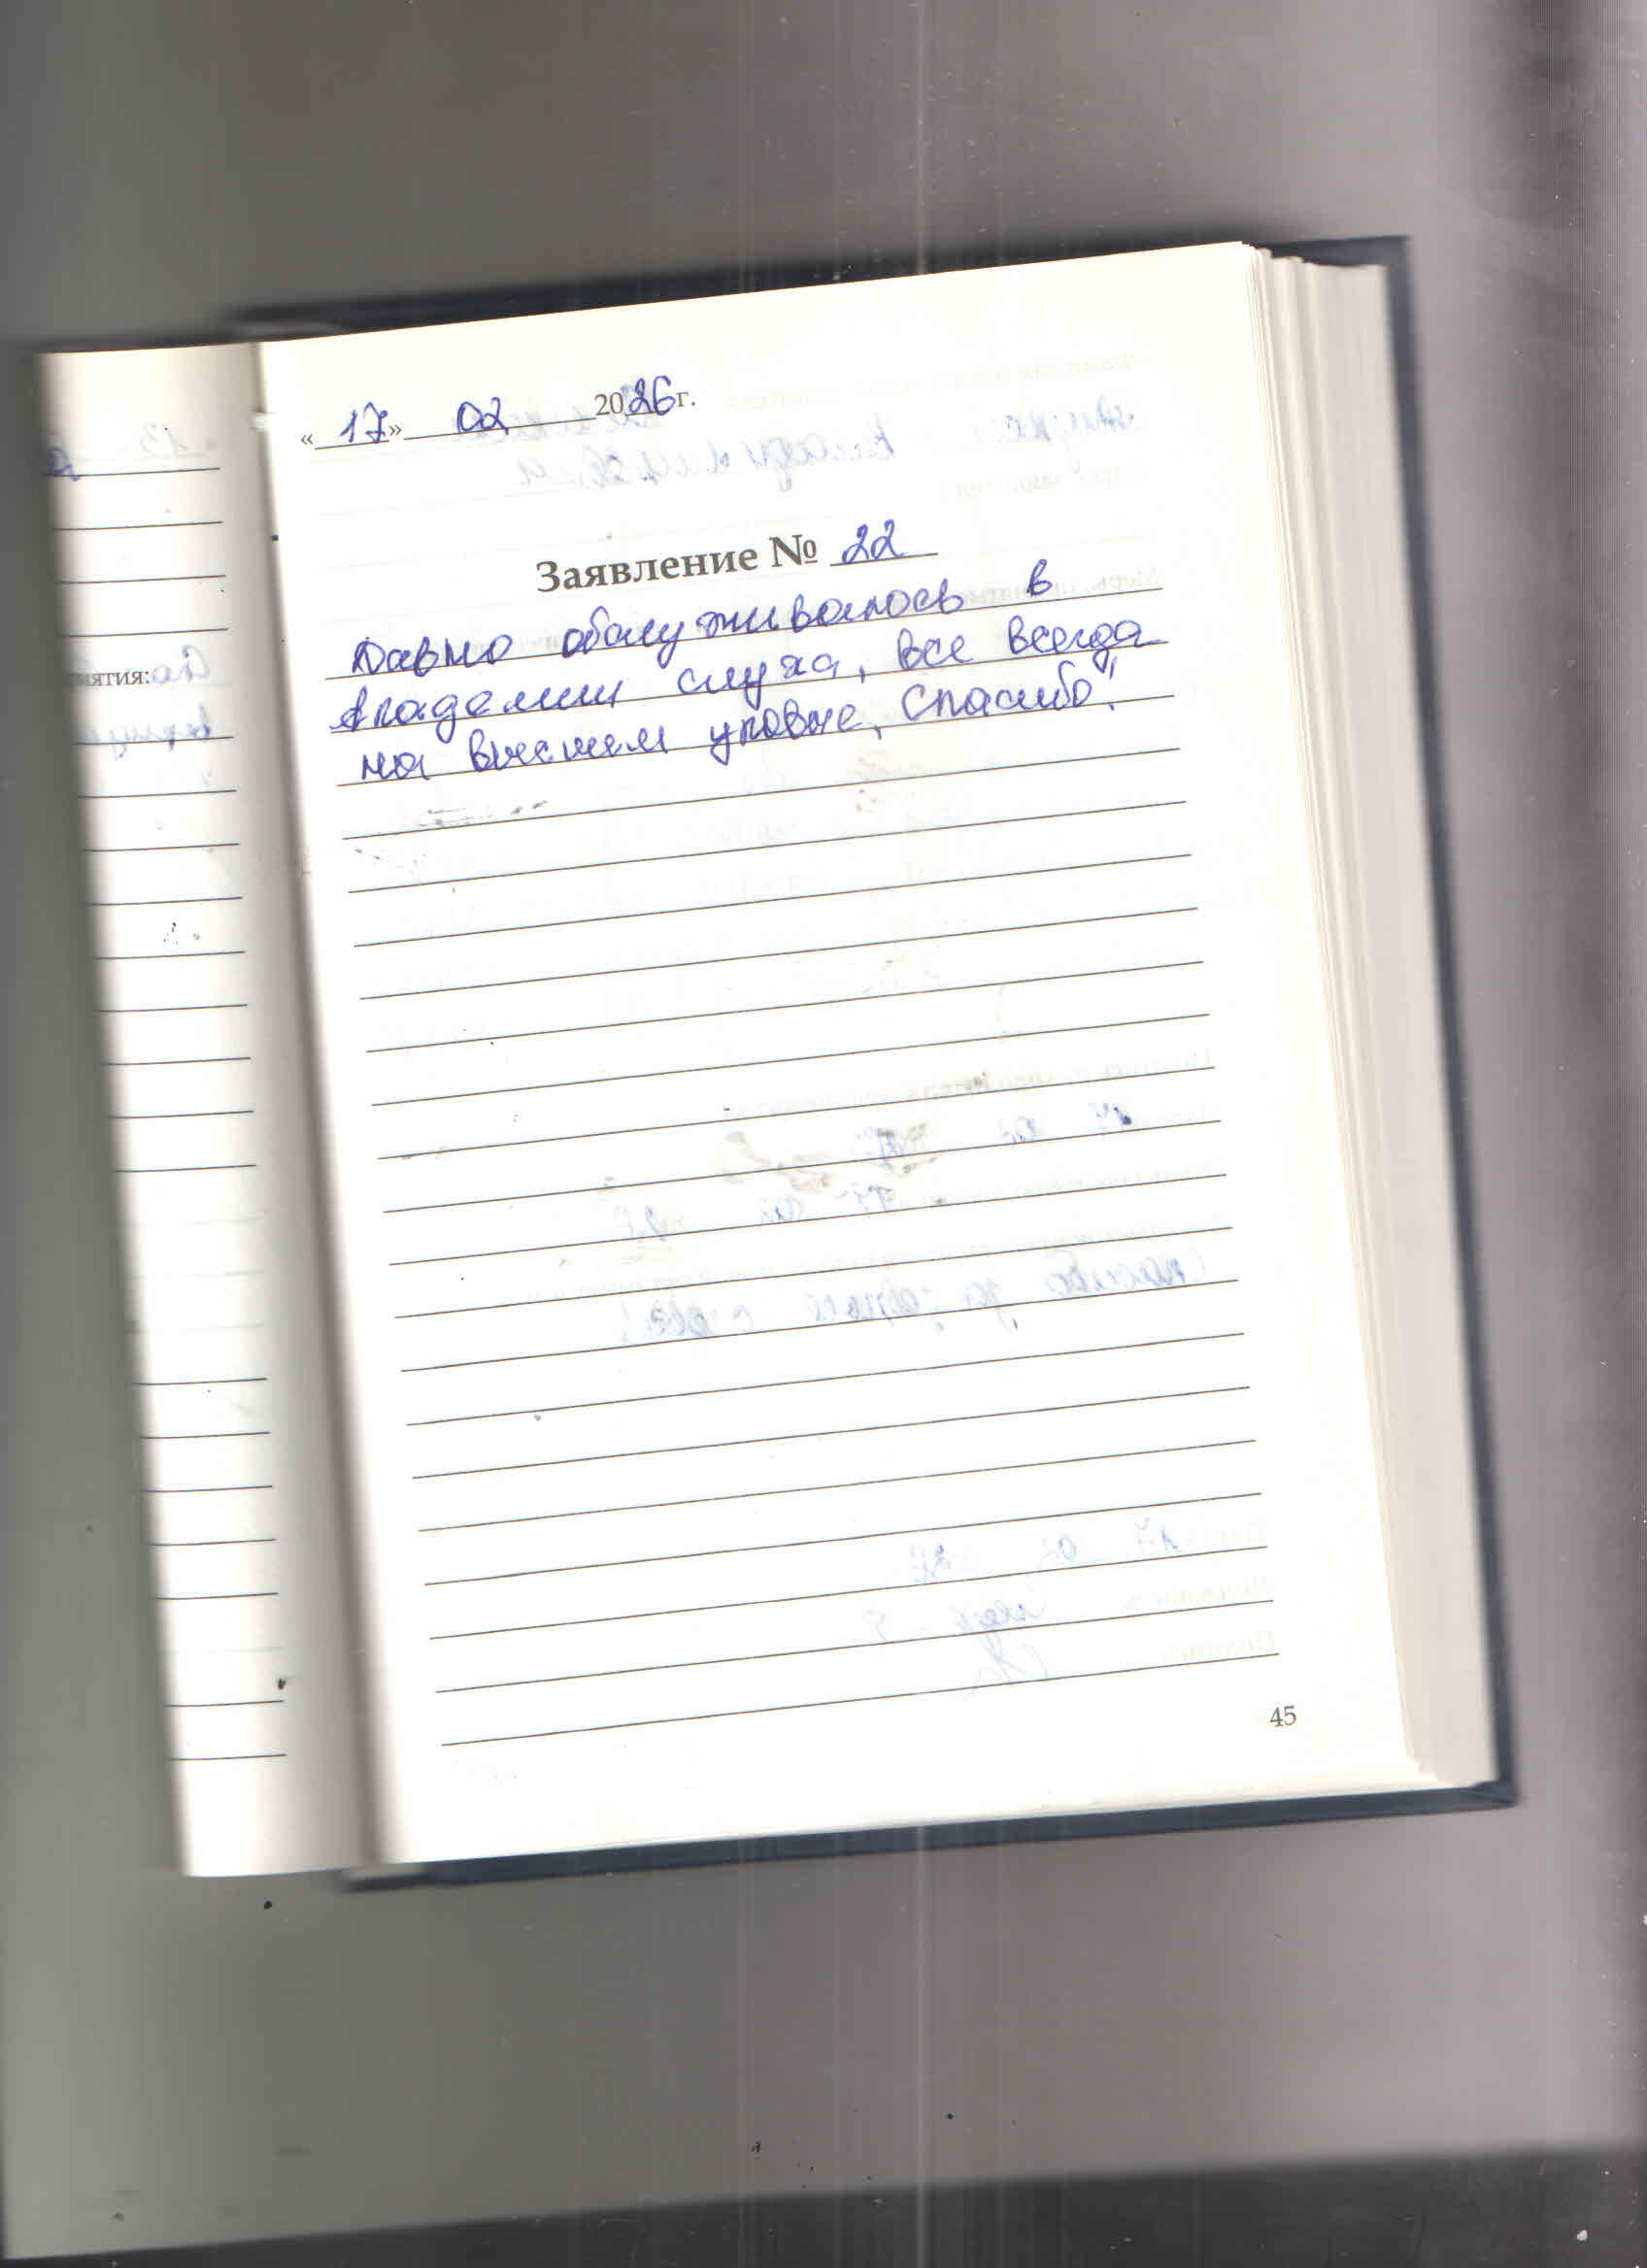 «17» 02 2026 г.
Заявление № 22
Давно обслуживаюсь в
Академии слуха, все всегда
на высшем уровне, Спасибо!
иятия:
45